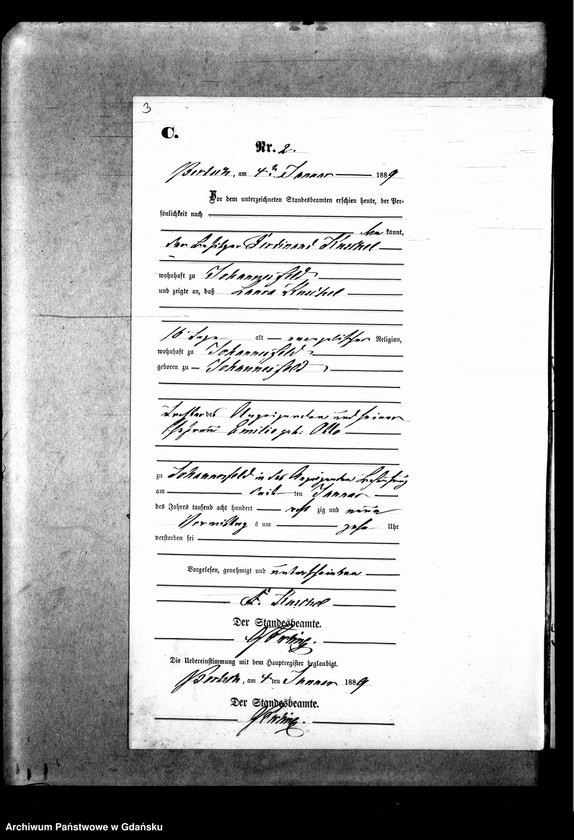 3
C.
Nr. 2.
am 4ten Januar 1889
Vor dem unterzeichneten Standesbeamten erschien heute, der Per-
sönlichkeit nach
kannt,
der Besitzer Ferdinand
wohnhaft zu Johannisfeld
und zeigte an, daß Laura
alt evangelischer Religion,
wohnhaft zu Johannisfeld
geboren zu Johannisfeld
Tochter des Anzeigenden und seiner
Ehefrau Emilie geb. Otto
zu Johannisfeld in des Anzeigenden Behausung
am ten Januar
des Jahres tausend acht hundert acht zig und neun
Vormittags um zehn Uhr
verstorben sei
Vorgelesen, genehmigt und unterschrieben
F.
Der Standesbeamte.
Die Uebereinstimmung mit dem Hauptregister beglaubigt.
am 4ten Januar 1889
Der Standesbeamte.
Archiwum Państwowe w Gdańsku